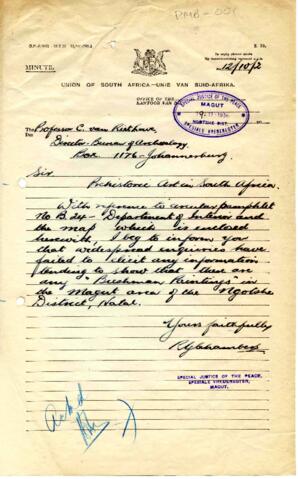 PMB-001
MINUTE.
12/10/2
UNION OF SOUTH AFRICA—UNIE VAN SUID-AFRIKA.
OFFICE OF THE
KANTOOR VAN
SPECIAL JUSTICE OF THE PEACE
MAGUT
SPESIALE VREDEREGTER
To Professor C. van Riet Lowe,
Director Bureau of Archaeology
Box 1176 Johannesburg
Sir
Prehistoric Art in South Africa.
With reference to circular pamphlet
No B.24 - Department of Interior and
the map which is enclosed
herewith, I beg to inform you
that widespread enquiries have
failed to elicit any information
tending to show that there are
any "Bushman Paintings" in
the Magut area of the Ngotshe
District, Natal.
Yours faithfully
SPECIAL JUSTICE OF THE PEACE,
SPESIALE VREDEREGTER,
MAGUT.